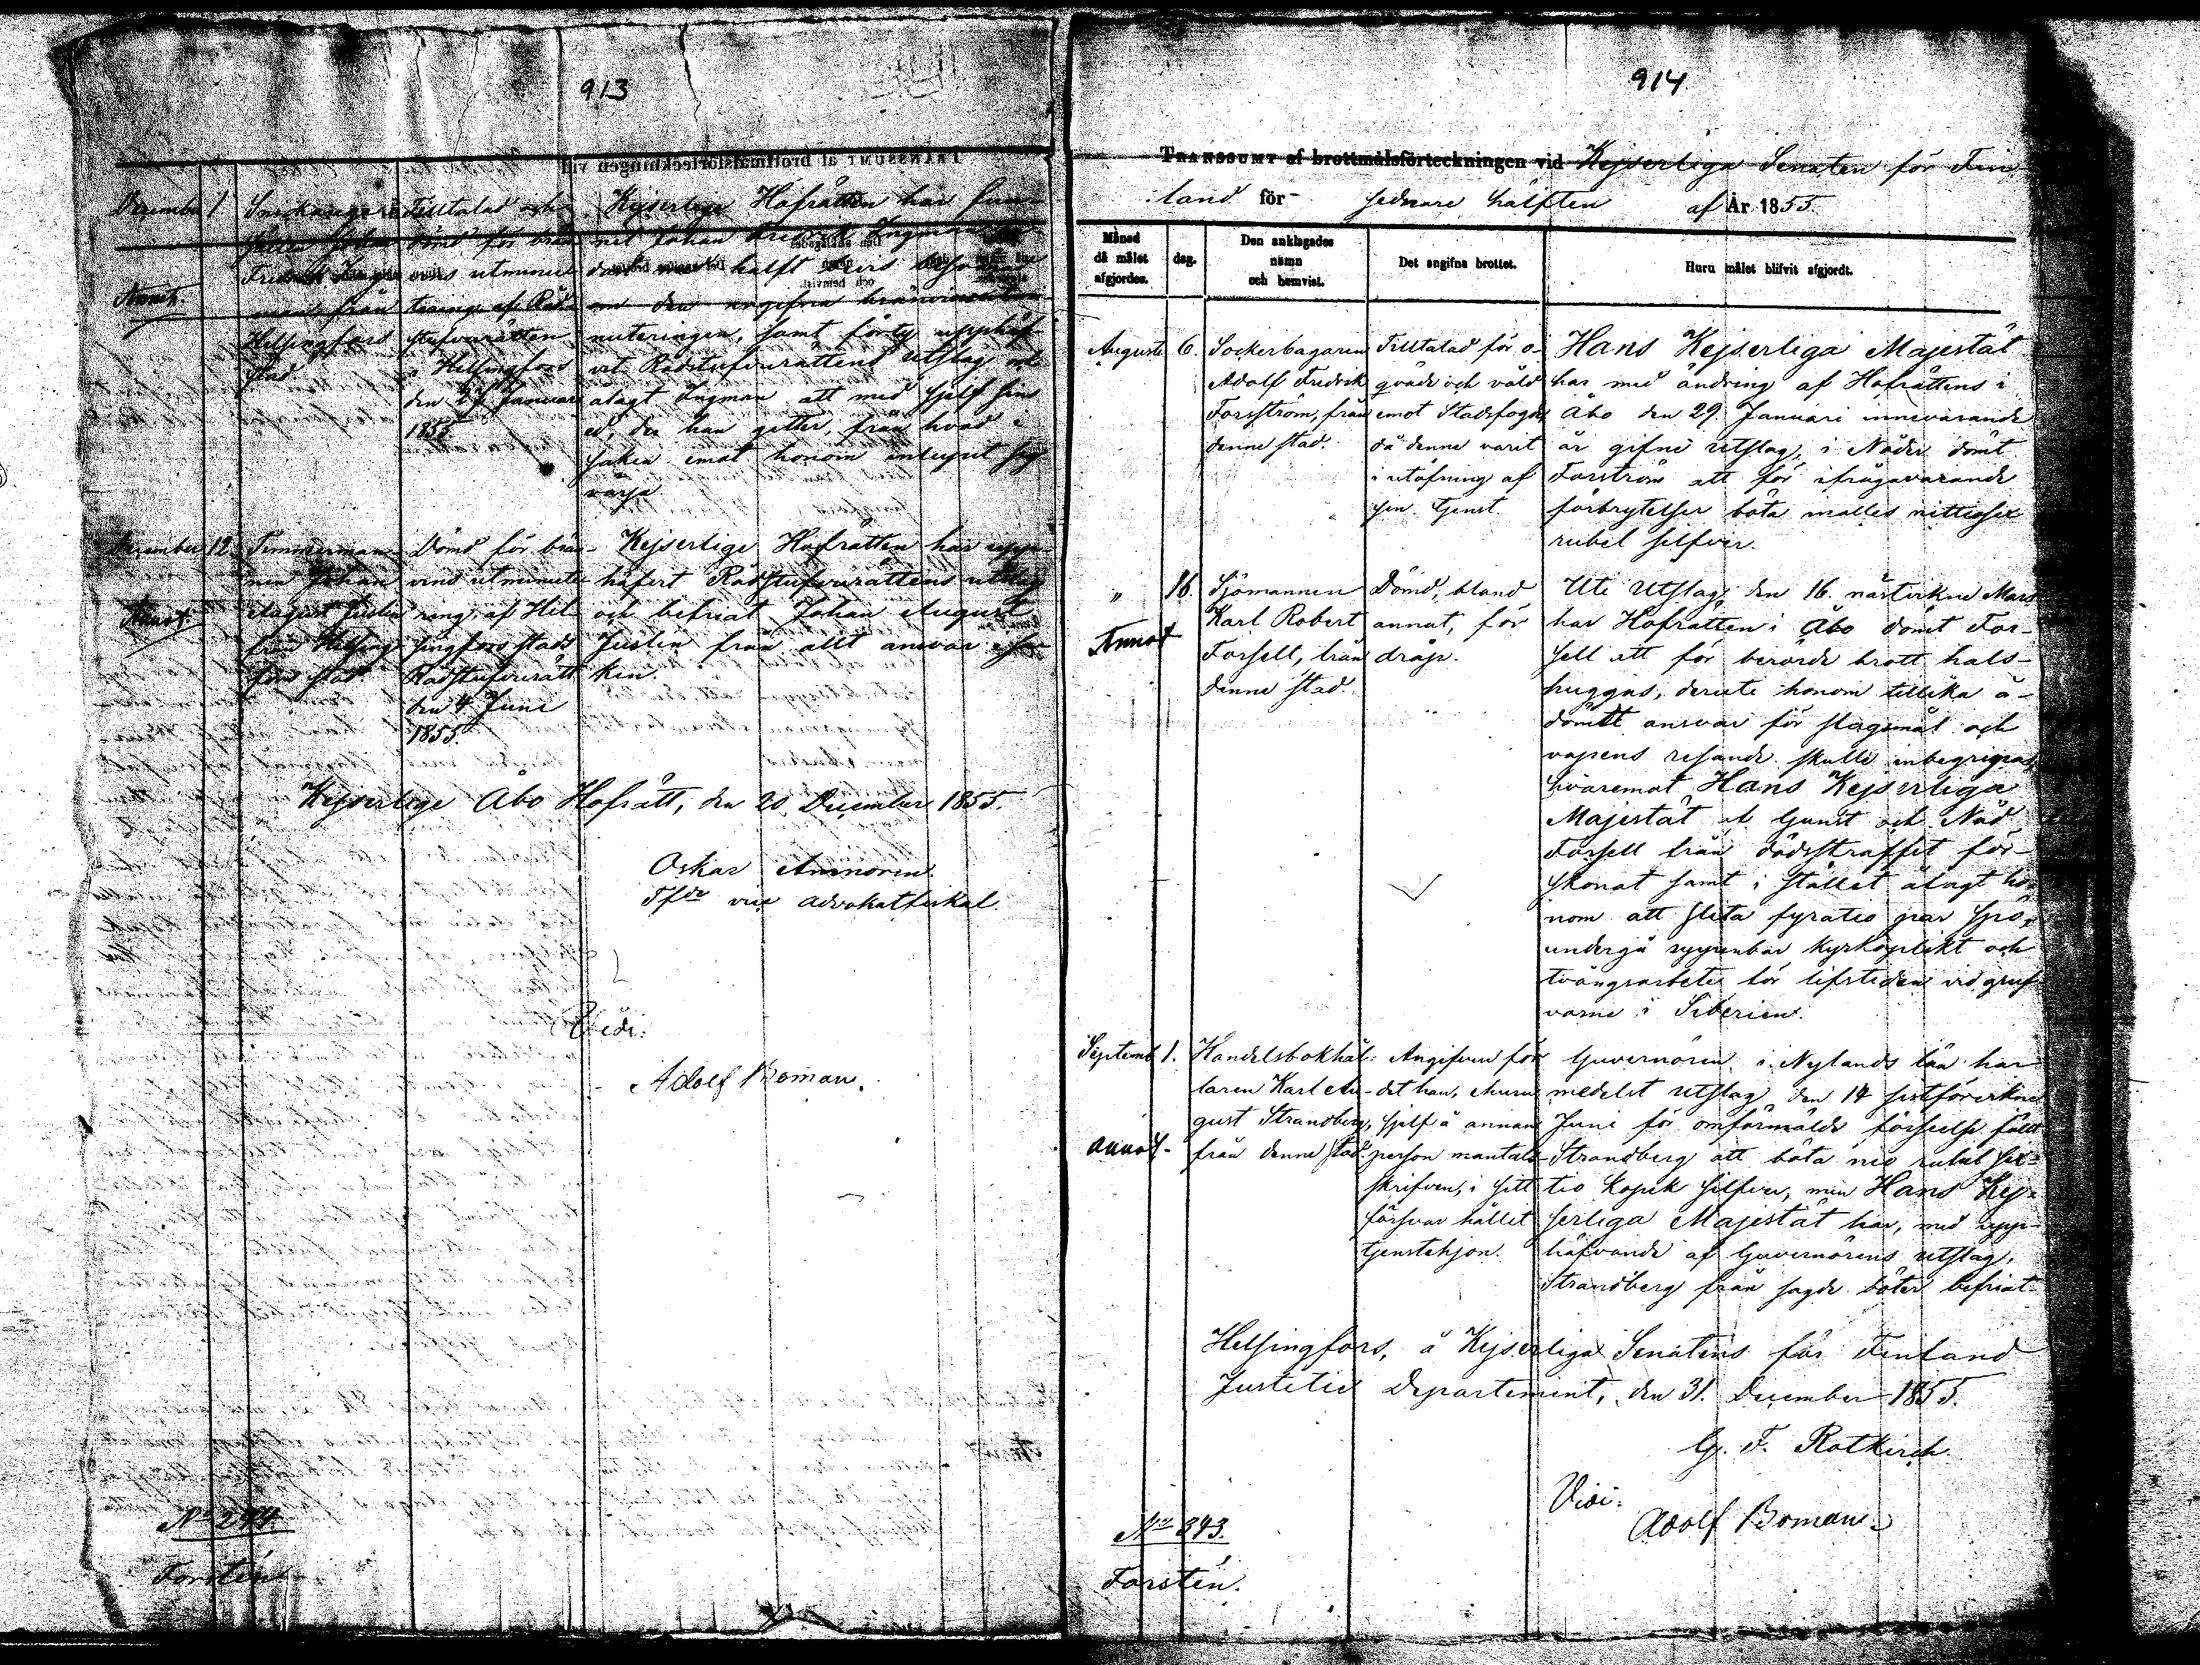 913
December 1
Annot.
Tilltalad och
dömd för brän-
vins utminu-
tering af Råd-
stufvurätten
i Helsingfors
den Januari
1855.
från
Helsingfors
stad
Kejserlige Hofrätten har fun-
nit Johan Fredrik Ingman
halft bevis
om den angifna bränvins
nuteringen, samt förty upphäf-
vit Rådstufvurättens Utslag och
ålagt Ingman att med sjelf sins
ed, der han gitter, från hvad i
saken emot honom anlupit sig
värja.
December 12
Annot.
Timmerman-
nen Johan
August Juslin
från Helsing-
fors stad
Dömd för brän-
vins utminute-
ring, af Hel-
singfors stads
Rådstufvurätt
den 4 Juni
1855.
Kejserlige Hofrätten har upp-
häfvit Rådstufvurättens utslag
och befriat Johan August
Juslin från allt ansvar i sa-
ken.
Kejserlige Åbo Hofrätt, den 20 December 1855.
Oskar Amnorin.
Tfde vice Advokatfiskal.
Vidi:
Adolf Boman.
No 244.
Forstén
914
TRANSSUMT af brottmålsförteckningen vid Kejserliga Senaten för Fin-
land för sednare hälften af År 1855.
Månad
då målet
afgjordes.
dag.
Den anklagades
namn
och hemvist.
Det angifna brottet.
Huru målet blifvit afgjordt.
Augusti 6.
Sockerbagaren
Adolf Fredrik
Forsström, från
denne stad.
Tilltalad för o-
qväde och våld
emot Stadsfogde,
då denne varit
i utöfning af
sin tjenst.
Hans Kejserliga Majestät
har med ändring af Hofrättens i
Åbo den 29 Januari innevarande
år gifne utslag, i Nåder dömt
Forström att för ifrågavarande
förbrytelser böta nittiosex
rubel silfver.
„ 16.
Annot
Sjömannen
Karl Robert
Forsell, från
denne stad.
Dömd, bland
annat, för
dråp.
Uti Utslag den 16 nästvekne Mars
har Hofrätten i Åbo dömt For-
sell att för berörde brott hals-
huggas, deruti honom tillika å-
dömdt ansvar för slagsmål och
vapens resande skulle inbegripas,
hvaremot Hans Kejserliga
Majestät af Gunst och Nåd
Forsell från dödsstraffet för-
skonat samt i stället ålagt ho-
nom att slita fyratio par spö,
undergå uppenbar kyrkoplikt och
tvångsarbete för lifstiden vid gruf-
varne i Siberien.
Septemb. 1.
annot-
Handelsbokhål-
laren Karl Au-
gust Strandberg,
från denne stad.
Angifven för
det han, ehuru
sjelf å annan
person mantals-
skrifven, i sitt
försvar hållet
tjenstehjon.
Guvernören i Nylands län har
medelst utslag den 14 sistförvekne
Juni för omförmälde förseelse fäldt
Strandberg att böta nio rubel sex-
tio kopek silfver, men Hans Kej-
serliga Majestät har, med upp-
häfvande af Guvernörens utslag,
Strandberg från sagde böter befriat.
Helsingfors, å Kejserliga Senatens för Finland
Justitie Departement, den 31. December 1855.
G. F. Rotkirch.
Vidi:
Adolf Boman.
No 843.
Forstén.